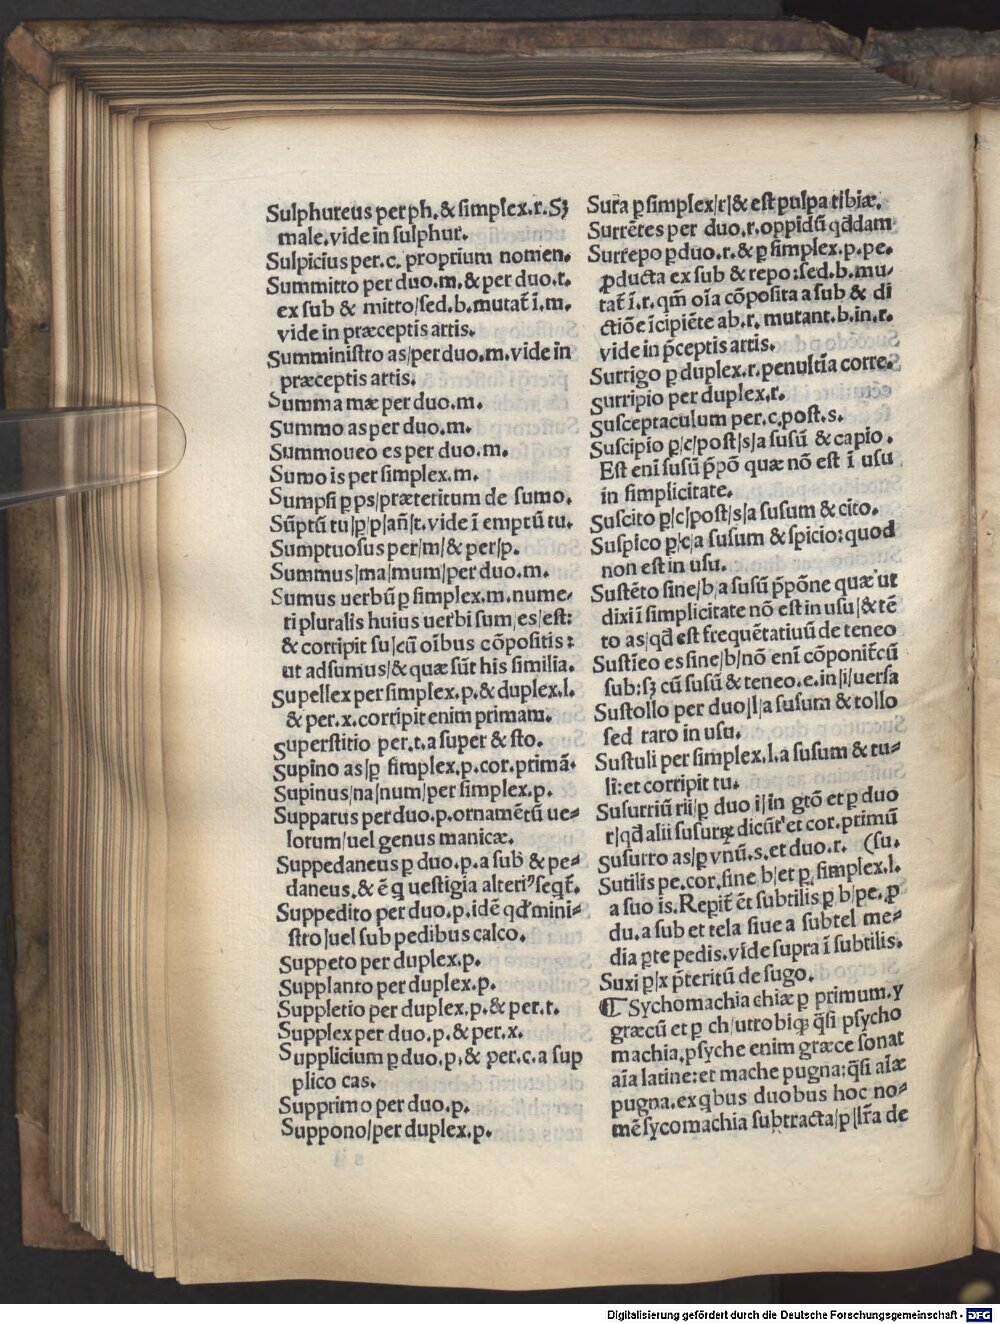 Sulphureus per ph. & simplex.r. Sꝫ
male.vide in sulphur.
Sulpicius per.c. proprium nomen.
Summitto per duo.m.& per duo.t.
ex sub & mitto/sed.b.mutat̃ ĩ.m.
vide in præceptis artis.
Sumministro as/per duo.m.vide in
præceptis artis.
Summa mæ per duo.m.
Summo as per duo.m.
Summoueo es per duo.m.
Sumo is per simplex.m.
Sumpsi ꝑ ps/præteritum de sumo.
Sũptũ tu/ꝑ/p/añ/t.vide ĩ emptũ tu.
Sumptuosus per/m/& per/p.
Summus/ma/mum/per duo.m.
Sumus uerbũ ꝑ simplex.m.nume⸗
ri pluralis huius uerbi sum/es/est:
& corripit su/cũ oĩbus cõpositis:
ut adsumus/& quæ sũt his similia.
Supellex per simplex.p.& duplex.l.
& per.x.corripit enim primam.
Superstitio per.t.a super & sto.
Supino as/ꝑ simplex.p.cor.primã.
Supinus/na/num/per simplex.p.
Supparus per duo.p.ornamẽtũ ue⸗
lorum/uel genus manicæ.
Suppedaneus ꝑ duo.p.a sub & pe⸗
daneus.& ẽ q uestigia alteriꝰ seqt̃.
Suppedito per duo.p.idẽ qd' mini⸗
stro/uel sub pedibus calco.
Suppeto per duplex.p.
Supplanto per duplex.p.
Suppletio per duplex.p.& per.t.
Supplex per duo.p.& per.x.
Supplicium ꝑ duo.p.& per.c.a sup
plico cas.
Supprimo per duo.p.
Suppono/per duplex.p.
Sura ꝑ simplex/r/& est pulpa tibiæ.
Surrẽtes per duo.r.oppidũ qddam
Surrepo ꝑ duo.r.& ꝑ simplex.p.pe.
ꝓducta ex sub & repo:sed.b.mu⸗
tat̃ ĩ.r.qm̃ oĩa cõposita a sub & di
ctiõe ĩcipiẽte ab.r. mutant.b.in.r.
vide in p̃ceptis artis.
Surrigo ꝑ duplex.r.penultĩa corre.
Surripio per duplex.r.
Susceptaculum per.c.post.s.
Suscipio ꝑ/c/post/s/a susũ & capio.
Est enĩ susũ p̃põ quæ nõ est ĩ usu
in simplicitate.
Suscito ꝑ/c/post/s/a susum & cito.
Suspico ꝑ/c/a susum & spicio:quod
non est in usu.
Sustẽto sine/b/a susũ p̃põne quæ ut
dixi ĩ simplicitate nõ est in usu/& tẽ
to as/qd est frequẽtatiuũ de teneo
Sustĩeo es sine/b/nõ enĩ cõponit̃ cũ
sub:sꝫ cũ susũ & teneo.e.in/i/uersa
Sustollo per duo/l/a susum & tollo
sed raro in usu.
Sustuli per simplex.l.a susum & tu⸗
li:et corripit tu.
Susurriũ rii/ꝑ duo i/in gtõ et ꝑ duo
r/qd alii susurꝝ dicũt' et cor.primũ
Susurro as/ꝑ vnũ.s.et duo.r. (su.
Sutilis pe.cor.sine b/et ꝑ simplex.l.
a suo is.Repit̃ ẽt subtilis ꝑ b/pe. ꝓ
du.a sub et tela siue a subtel me⸗
dia ꝑte pedis.vide supra ĩ subtilis.
Suxi ꝑ/x p̃teritũ de sugo.
¶ Sychomachia chiæ ꝑ primum.y
græcũ et ꝑ ch/utrobiqꝫ q̃si psycho
machia.psyche enim græce sonat
aĩa latine:et mache pugna:q̃si alæ
pugna.ex qbus duobus hoc no⸗
mẽ sycomachia subtracta/p/lr̃a de
Digitalisierung gefördert durch die Deutsche Forschungsgemeinschaft - DFG